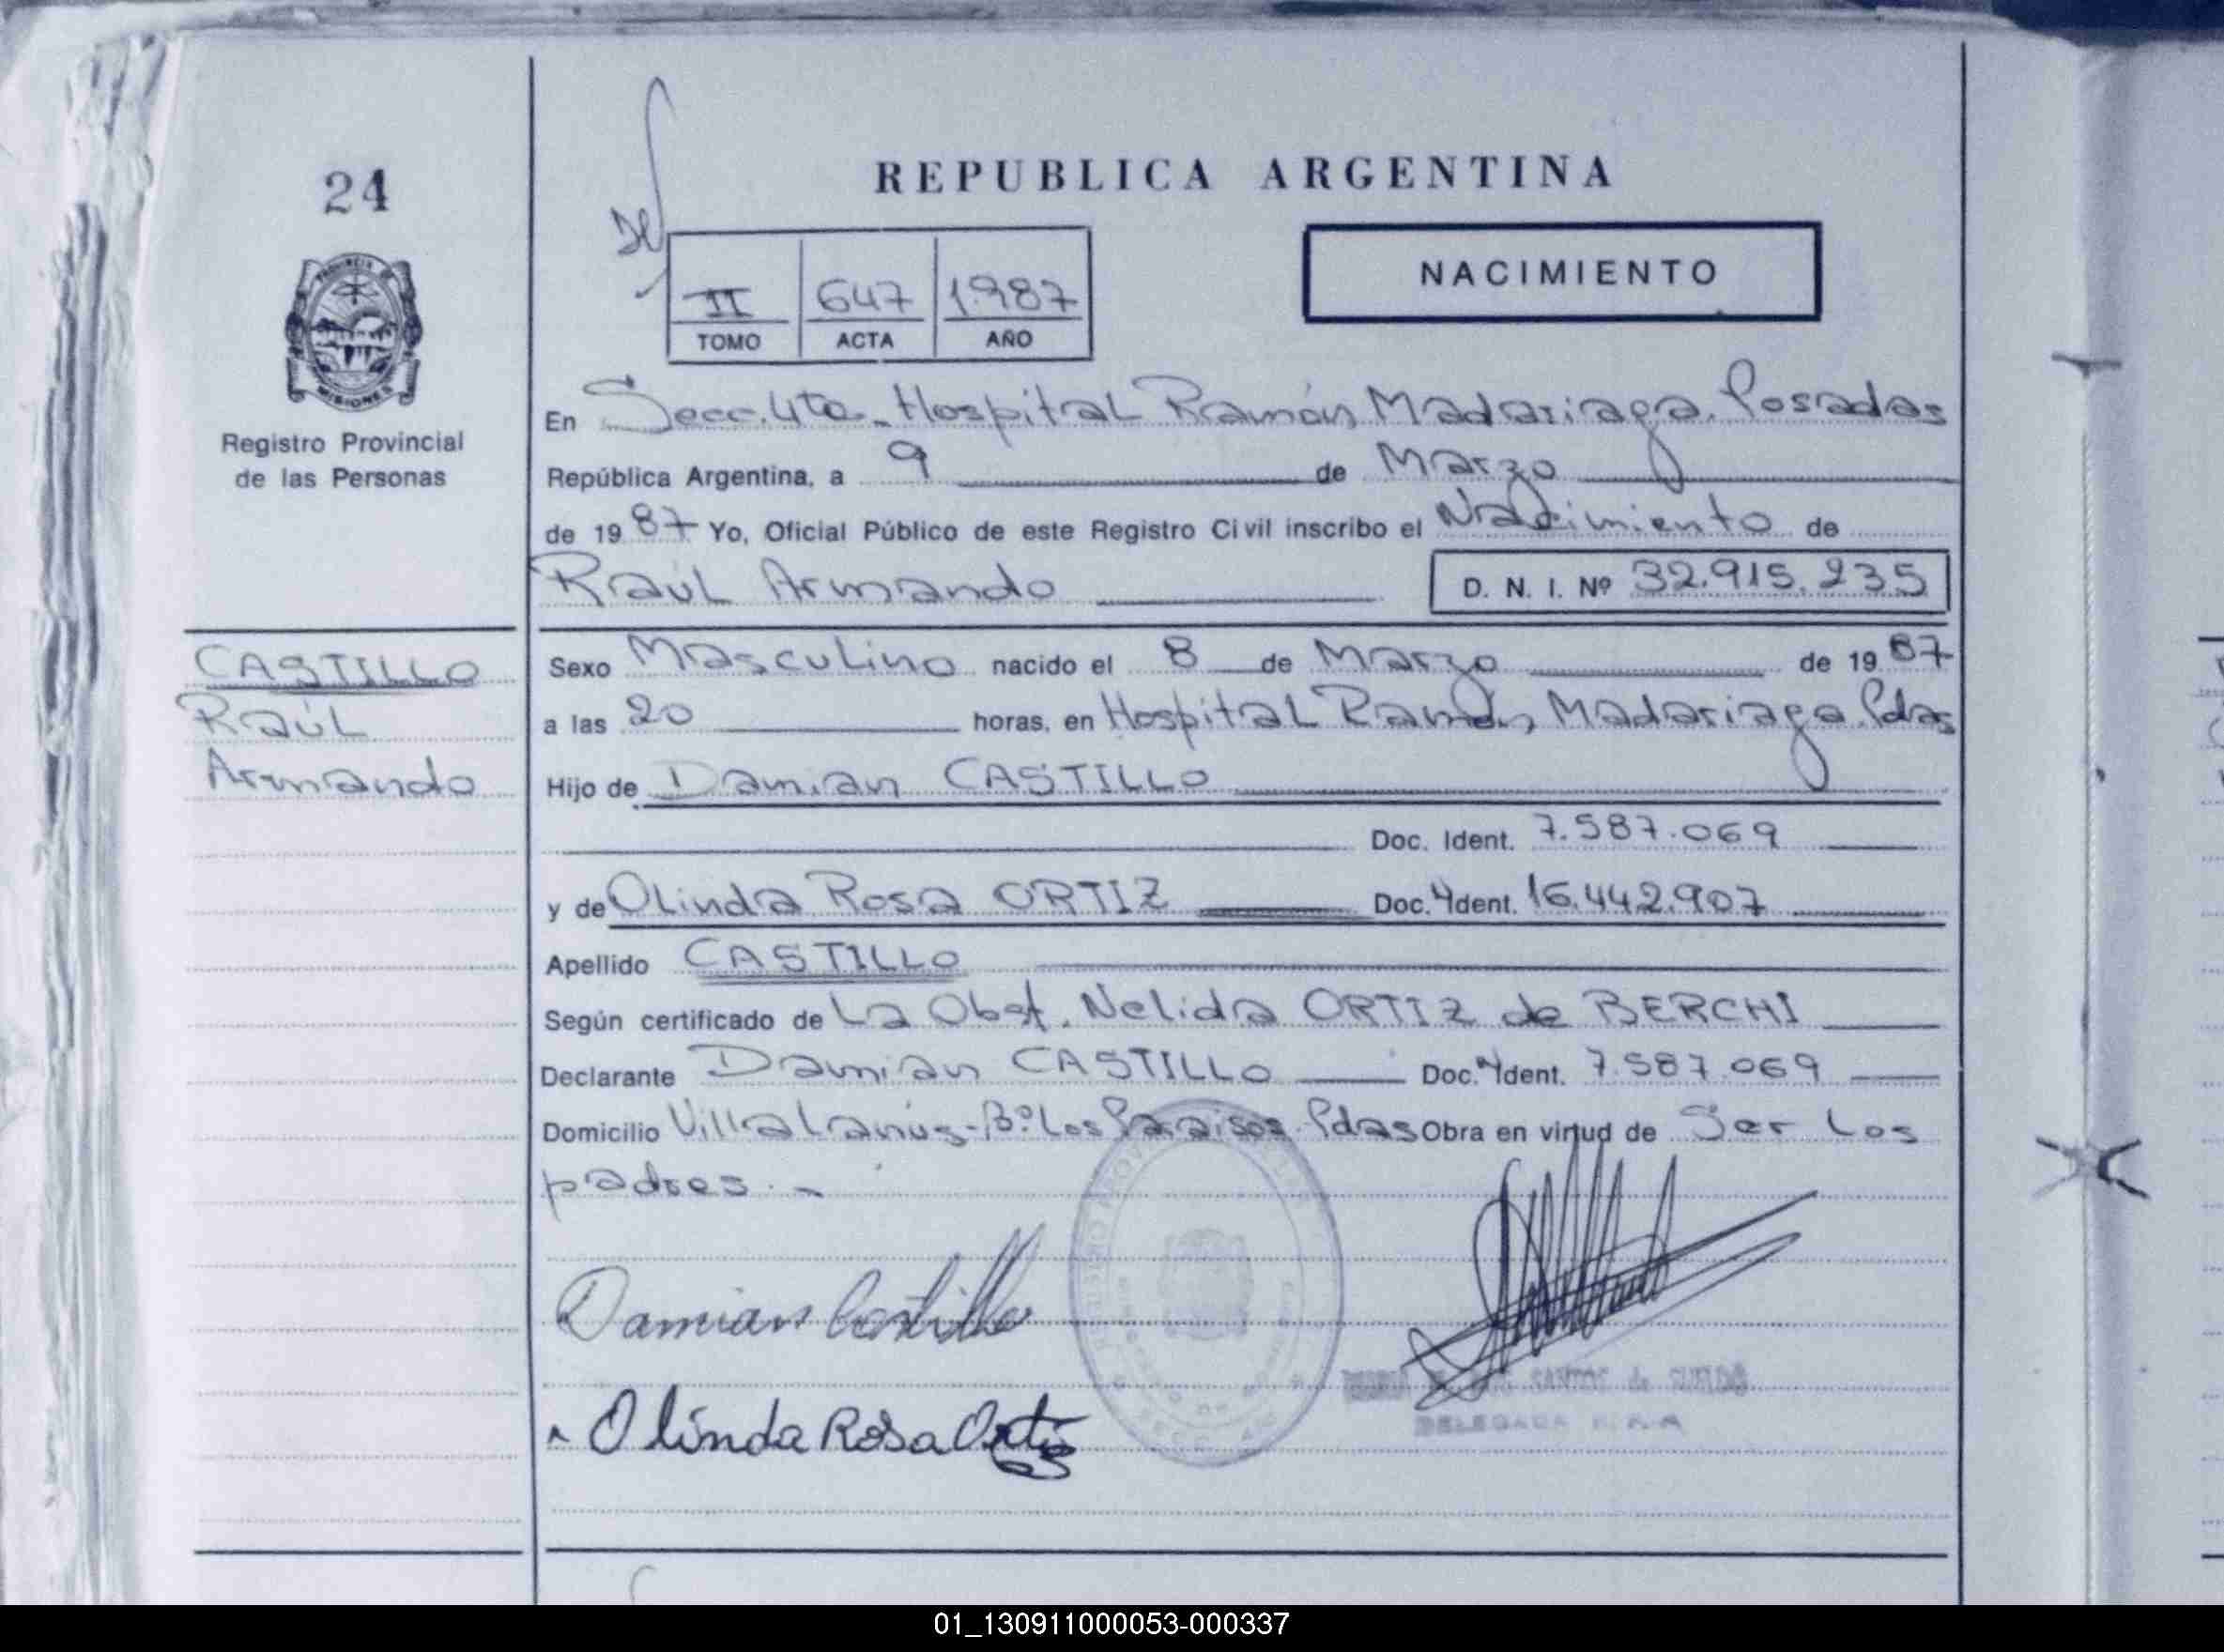 24
REPUBLICA ARGENTINA
NACIMIENTO
II 647 1.987
TOMO ACTA AÑO
PROVINCIA DE
MISIONES
Registro Provincial
de las Personas
En Secc. 4ta - Hospital Ramón Madariaga. Posadas
República Argentina, a 9 de Marzo
de 1987 Yo, Oficial Público de este Registro Civil inscribo el Nacimiento de
Raúl Armando D. N. I. Nº 32.915.235
CASTILLO
Raúl
Armando
Sexo Masculino nacido el 8 de Marzo de 1987
a las 20 horas, en Hospital Ramón Madariaga. Pdas
Hijo de Damian CASTILLO
Doc. Ident. 7.587.069
y de Olinda Rosa ORTIZ Doc. Ident. 16.442.907
Apellido CASTILLO
Según certificado de La Obst. Nelida ORTIZ de BERCHI
Declarante Damian CASTILLO Doc. Ident. 7.587.069
Domicilio Villa Lanús - Bº Los Paraisos. Pdas Obra en virtud de Ser Los
padres. -
Damian Castillo
Olinda Rosa Ortiz
DELEGADA
01_130911000053-000337